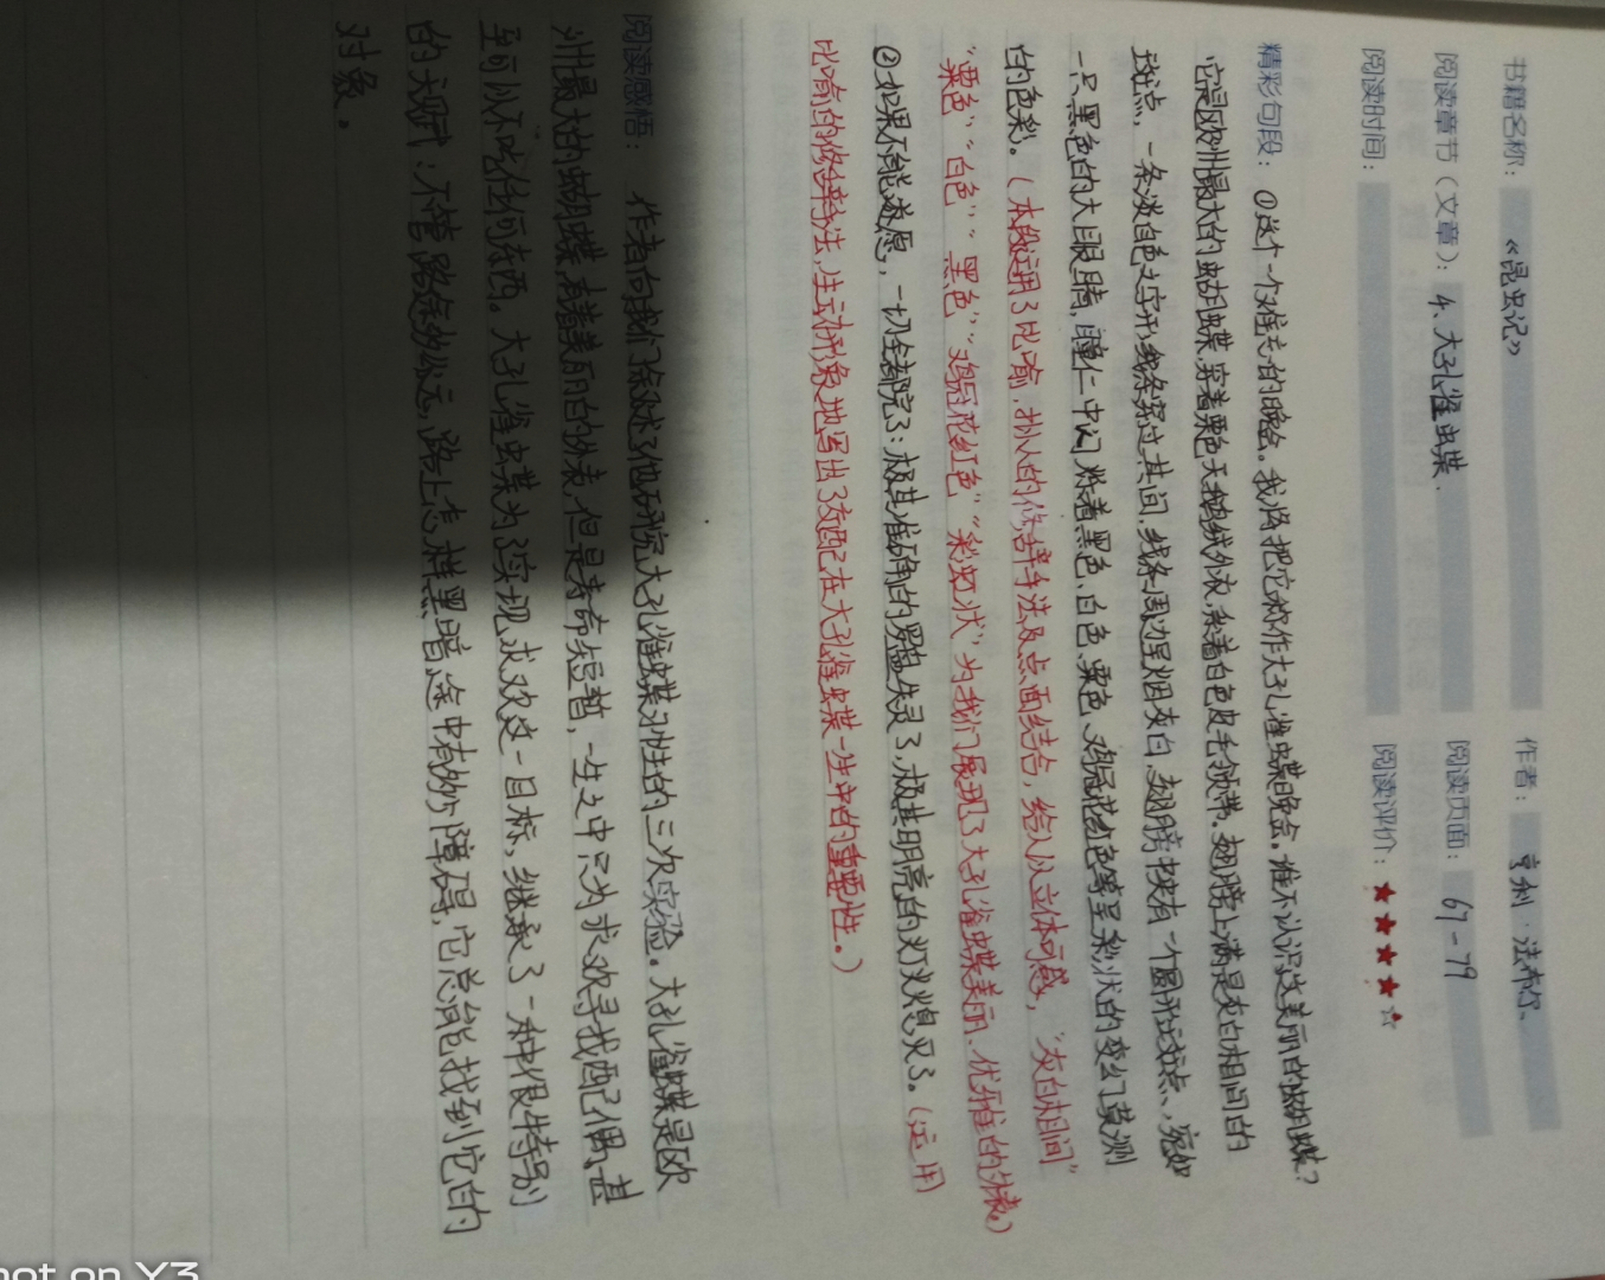 书籍名称：《昆虫记》 作者：亨利·法布尔、
阅读章节（文章）：4、大孔雀蝶． 阅读页面：67-79
阅读时间： 阅读评价：★★★★☆
精彩句段：①这个一个难忘的晚会。我将把它称作大孔雀蝶晚会。谁不认识这美丽的蝴蝶？
它是欧州最大的蝴蝶，穿着栗色天鹅绒外衣，系着白色皮毛领带。翅膀上满是灰白相间的
斑点，一条淡白色之字形线条穿过其间，线条周边呈烟灰白，翅膀中央有一个圆形斑点，宛如
一只黑色的大眼睛，瞳仁中闪烁着黑色、白色、栗色、鸡冠花红色等呈彩状的变幻莫测
的色彩。（本段运用了比喻，拟人的修辞手法及点面结合，给人以立体可感，“灰白相间”
“栗色”“白色”“黑色”“鸡冠花红色”“彩虹状”为我们展现了大孔雀蝶美丽、优雅的外表。）
②如果不能遂愿，一切全都完了：极其准确的罗盘失灵了，极其明亮的灯火熄灭了。（运用
比喻的修辞手法，生动形象地写出了交配在大孔雀蝶一生中的重要性。）
阅读感悟： 作者向我们叙述了他研究大孔雀蝶习性的三次实验。大孔雀蝶是欧
州最大的蝴蝶，有着美丽的外表，但是寿命短暂，一生之中只为求欢寻找配偶，甚
至可以不吃任何东西。大孔雀蝶为了实现求欢这一目标，继承了一种很特别
的天赋：不管路途多么遥远，路上怎样黑暗，途中有多少障碍，它总能找到它的
对象。
not on Y3